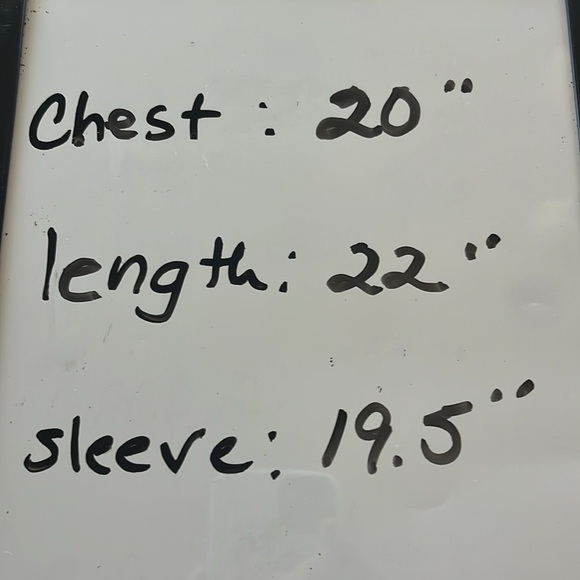 Chest : 20"
length: 22"
sleeve: 19.5"